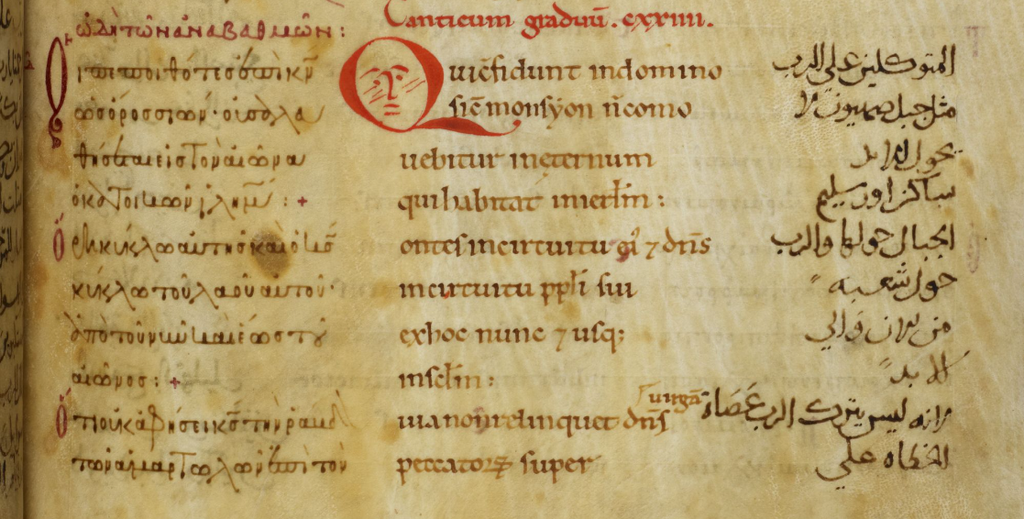 ὠδὴ τῶν ἀναβαθμῶν:
Οἱ πεποιθότες ἐπὶ κν̅
ὡς ὄρος σιών· οὐ σαλευ
θήσεται εἰς τὸν αἰῶνα
ὁ κατοικῶν ιλη̅μ̅ : +
ὄρη κύκλω αὐτῆς καὶ ὁ κ̅ς̅
κύκλω τοῦ λαοῦ αὐτοῦ·
ἀπὸ τοῦ νῦν καὶ ἕως τοῦ
αἰῶνος : +
ὅτι οὐκ ἀφήσει κ̅ς̅ τὴν ράβδ
τῶν ἁμαρτωλῶν ἐπὶ τὸν
Canticum graduū. cxxiiii.
Qui c̄fidunt in domino
sic̄ mons syon n̄ como
uebitur in eternum
qui habitat in ierłm :
ontes in circuitu ei' ⁊ dn̄s
in circuitu ppłi sui
ex hoc nunc ⁊ usq;
in scłm :
uia non relinquet dn̄s uirgā
peccatoꝝ super
المتوكلين على الرب
مثل جبل صهيون لا
يحول للابد
ساكن اورسليم
الجبال حولها والرب
حول شعبه
من الان والي
الابد
وانه ليس يترك الرب عصاة
الخطاه علي